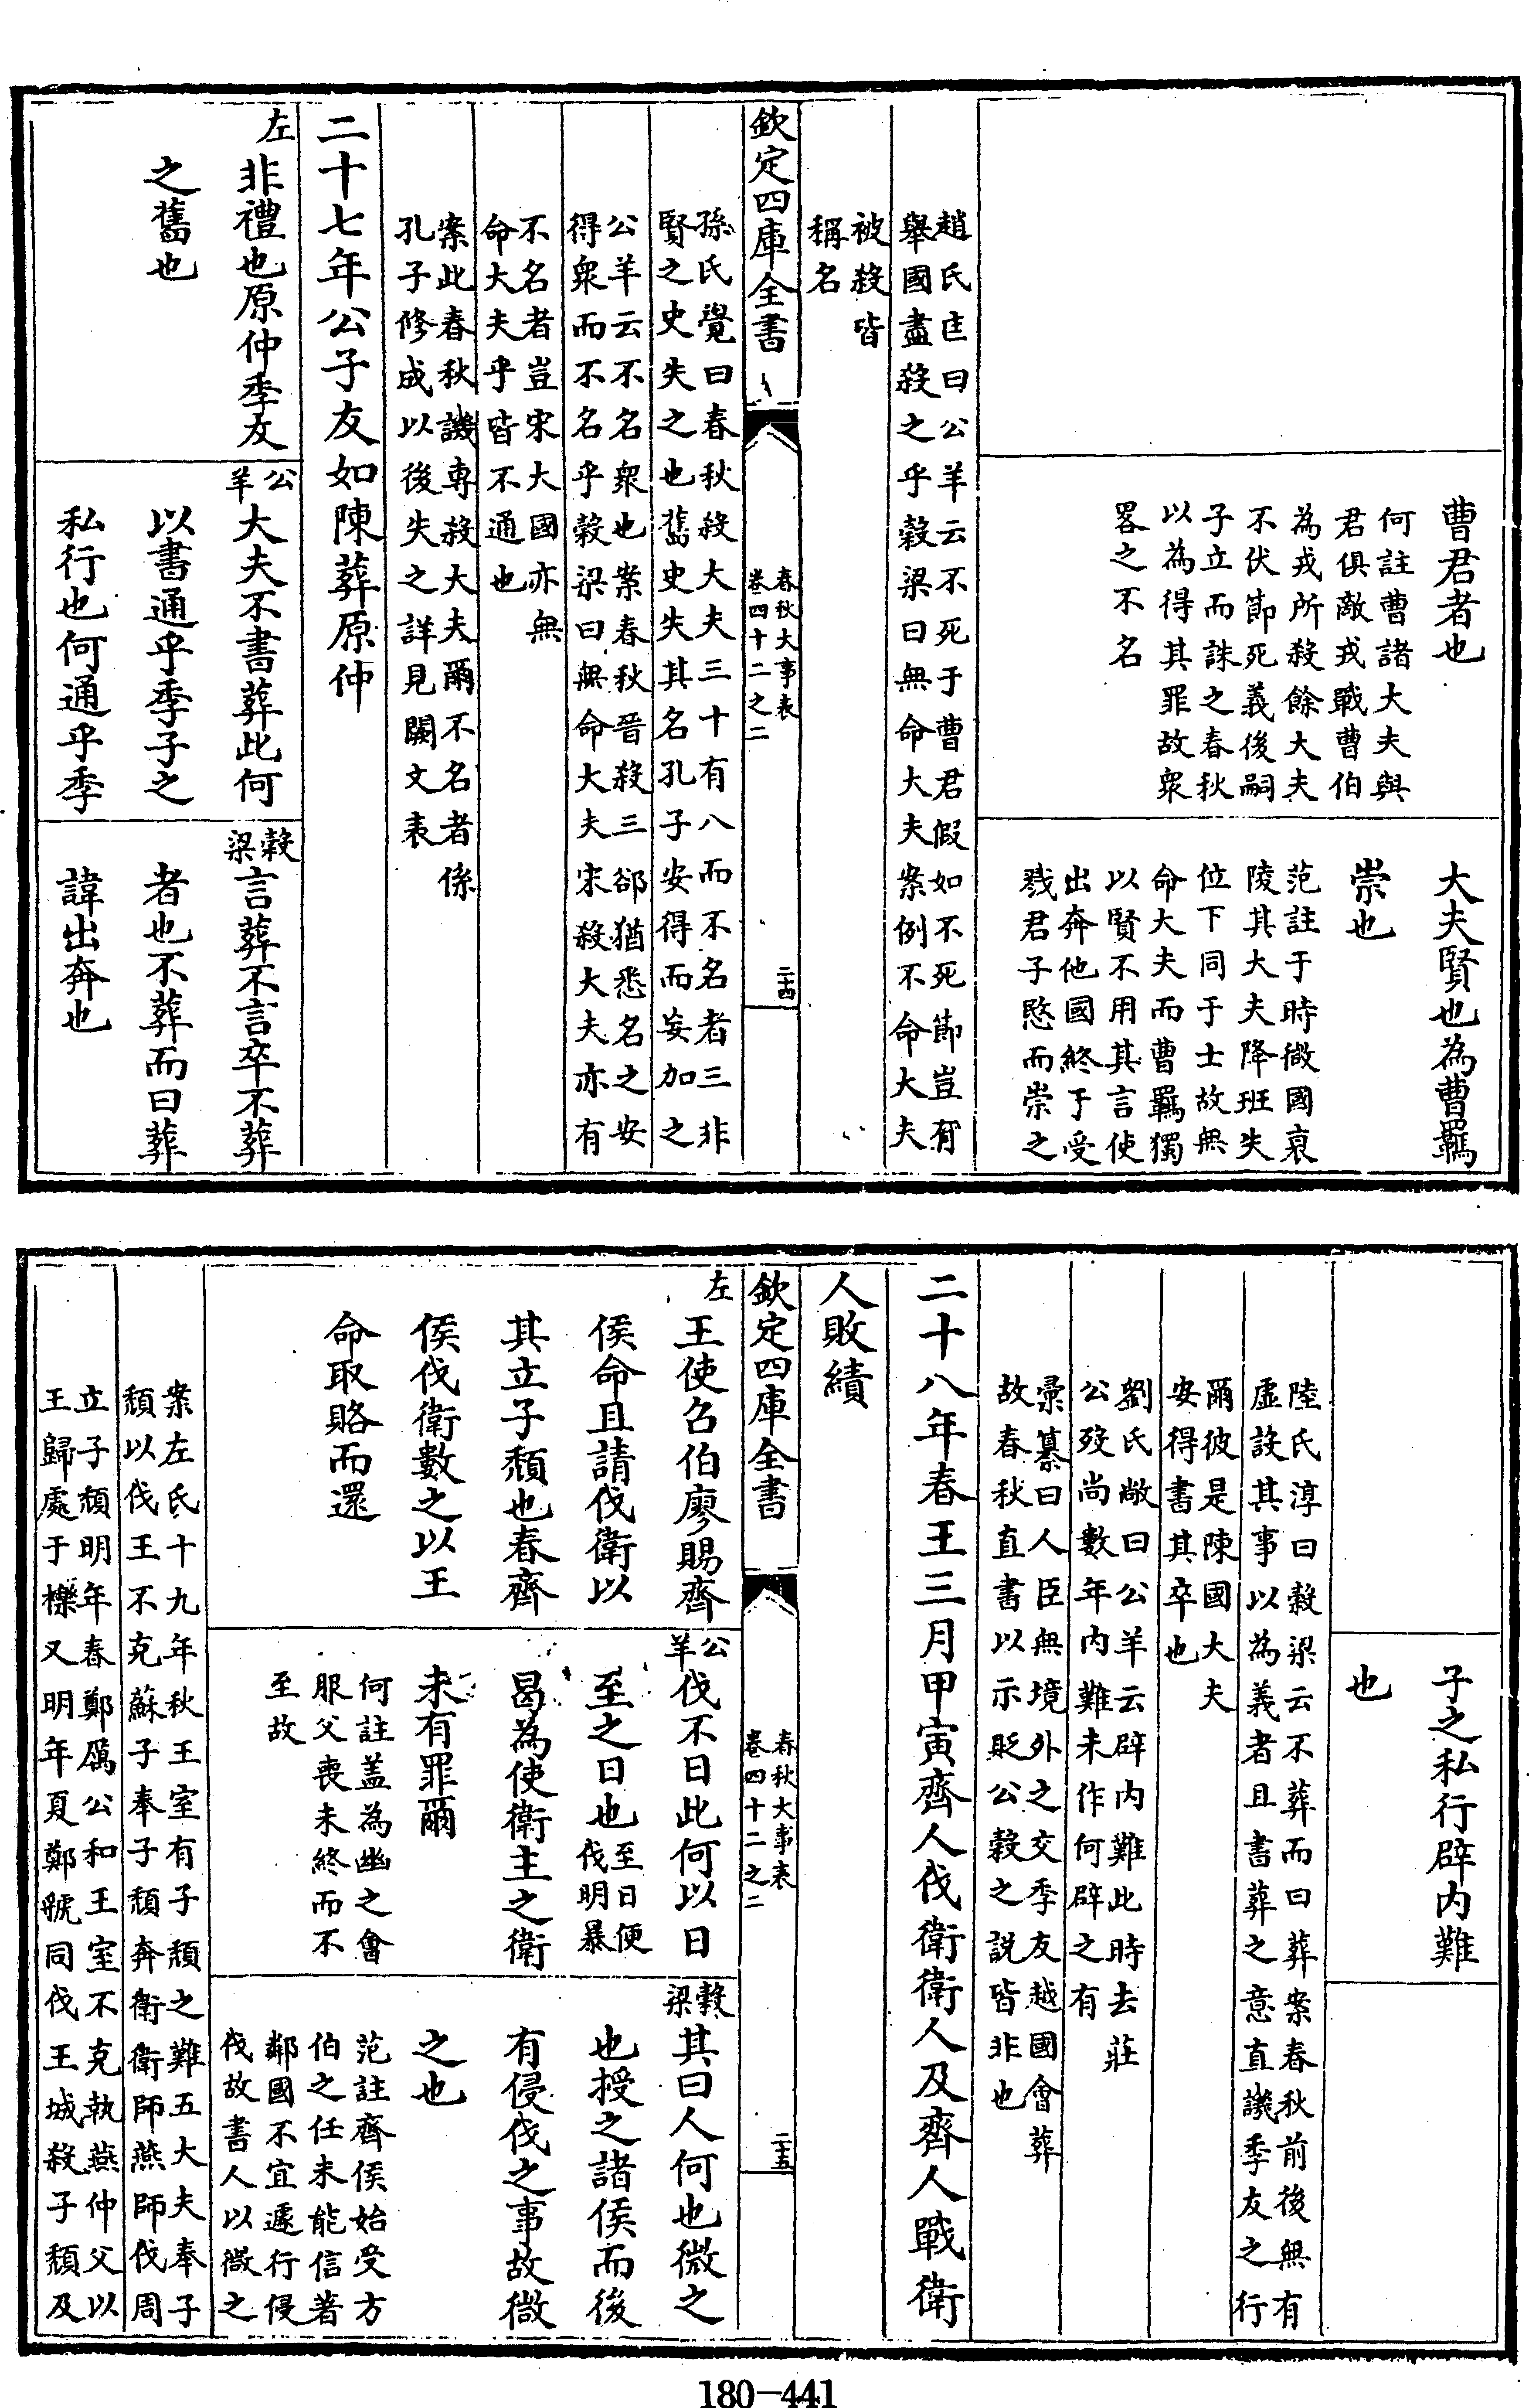 曹君者也
何註曹諸大夫與
君俱敵戎戰曹伯
為戎所殺餘大夫
不伏節死義後嗣
子立而誅之春秋
以為得其罪故衆
畧之不名
大夫賢也為曹羈
崇也
范註于時微國衰
陵其大夫降班失
位下同于士故無
命大夫而曹羈獨
以賢不用其言使
出奔他國終于受
戮君子愍而崇之
趙氏匡曰公羊云不死于曹君假如不死節豈有
舉國盡殺之乎穀梁曰無命大夫案例不命大夫
被殺皆
稱名
欽定四庫全書
春秋大事表
卷四十二之二
二十四
孫氏覺曰春秋殺大夫三十有八而不名者三非
賢之史失之也舊史失其名孔子安得而妄加之
公羊云不名衆也案春秋晉殺三郤猶悉名之安
得衆而不名乎穀梁曰無命大夫宋殺大夫亦有
不名者豈宋大國亦無
命大夫乎皆不通也
案此春秋譏專殺大夫爾不名者係
孔子修成以後失之詳見闕文表
二十七年公子友如陳葬原仲
左
非禮也原仲季友
之舊也
公羊
大夫不書葬此何
以書通乎季子之
私行也何通乎季
穀梁
言葬不言卒不葬
者也不葬而曰葬
諱出奔也
子之私行辟内難
也
陸氏淳曰穀梁云不葬而曰葬案春秋前後無有
虛設其事以為義者且書葬之意直譏季友之行
爾彼是陳國大夫
安得書其卒也
劉氏敞曰公羊云辟内難此時去莊
公歿尚數年内難未作何辟之有
彙纂曰人臣無境外之交季友越國會葬
故春秋直書以示貶公穀之説皆非也
二十八年春王三月甲寅齊人伐衛衛人及齊人戰衛
人敗績
欽定四庫全書
春秋大事表
卷四十二之二
二十五
左
王使召伯廖賜齊
侯命且請伐衛以
其立子頹也春齊
侯伐衛數之以王
命取賂而還
公羊
伐不日此何以日
至之日也
至日便
伐明暴
曷為使衛主之衛
未有罪爾
何註蓋為幽之會
服父喪未終而不
至故
穀梁
其曰人何也微之
也授之諸侯而後
有侵伐之事故微
之也
范註齊侯始受方
伯之任未能信著
鄰國不宜遽行侵
伐故書人以微之
案左氏十九年秋王室有子頹之難五大夫奉子
頹以伐王不克蘇子奉子頹奔衛衛師燕師伐周
立子頹明年春鄭厲公和王室不克執燕仲父以
王歸處于櫟又明年夏鄭虢同伐王城殺子頹及
180-441